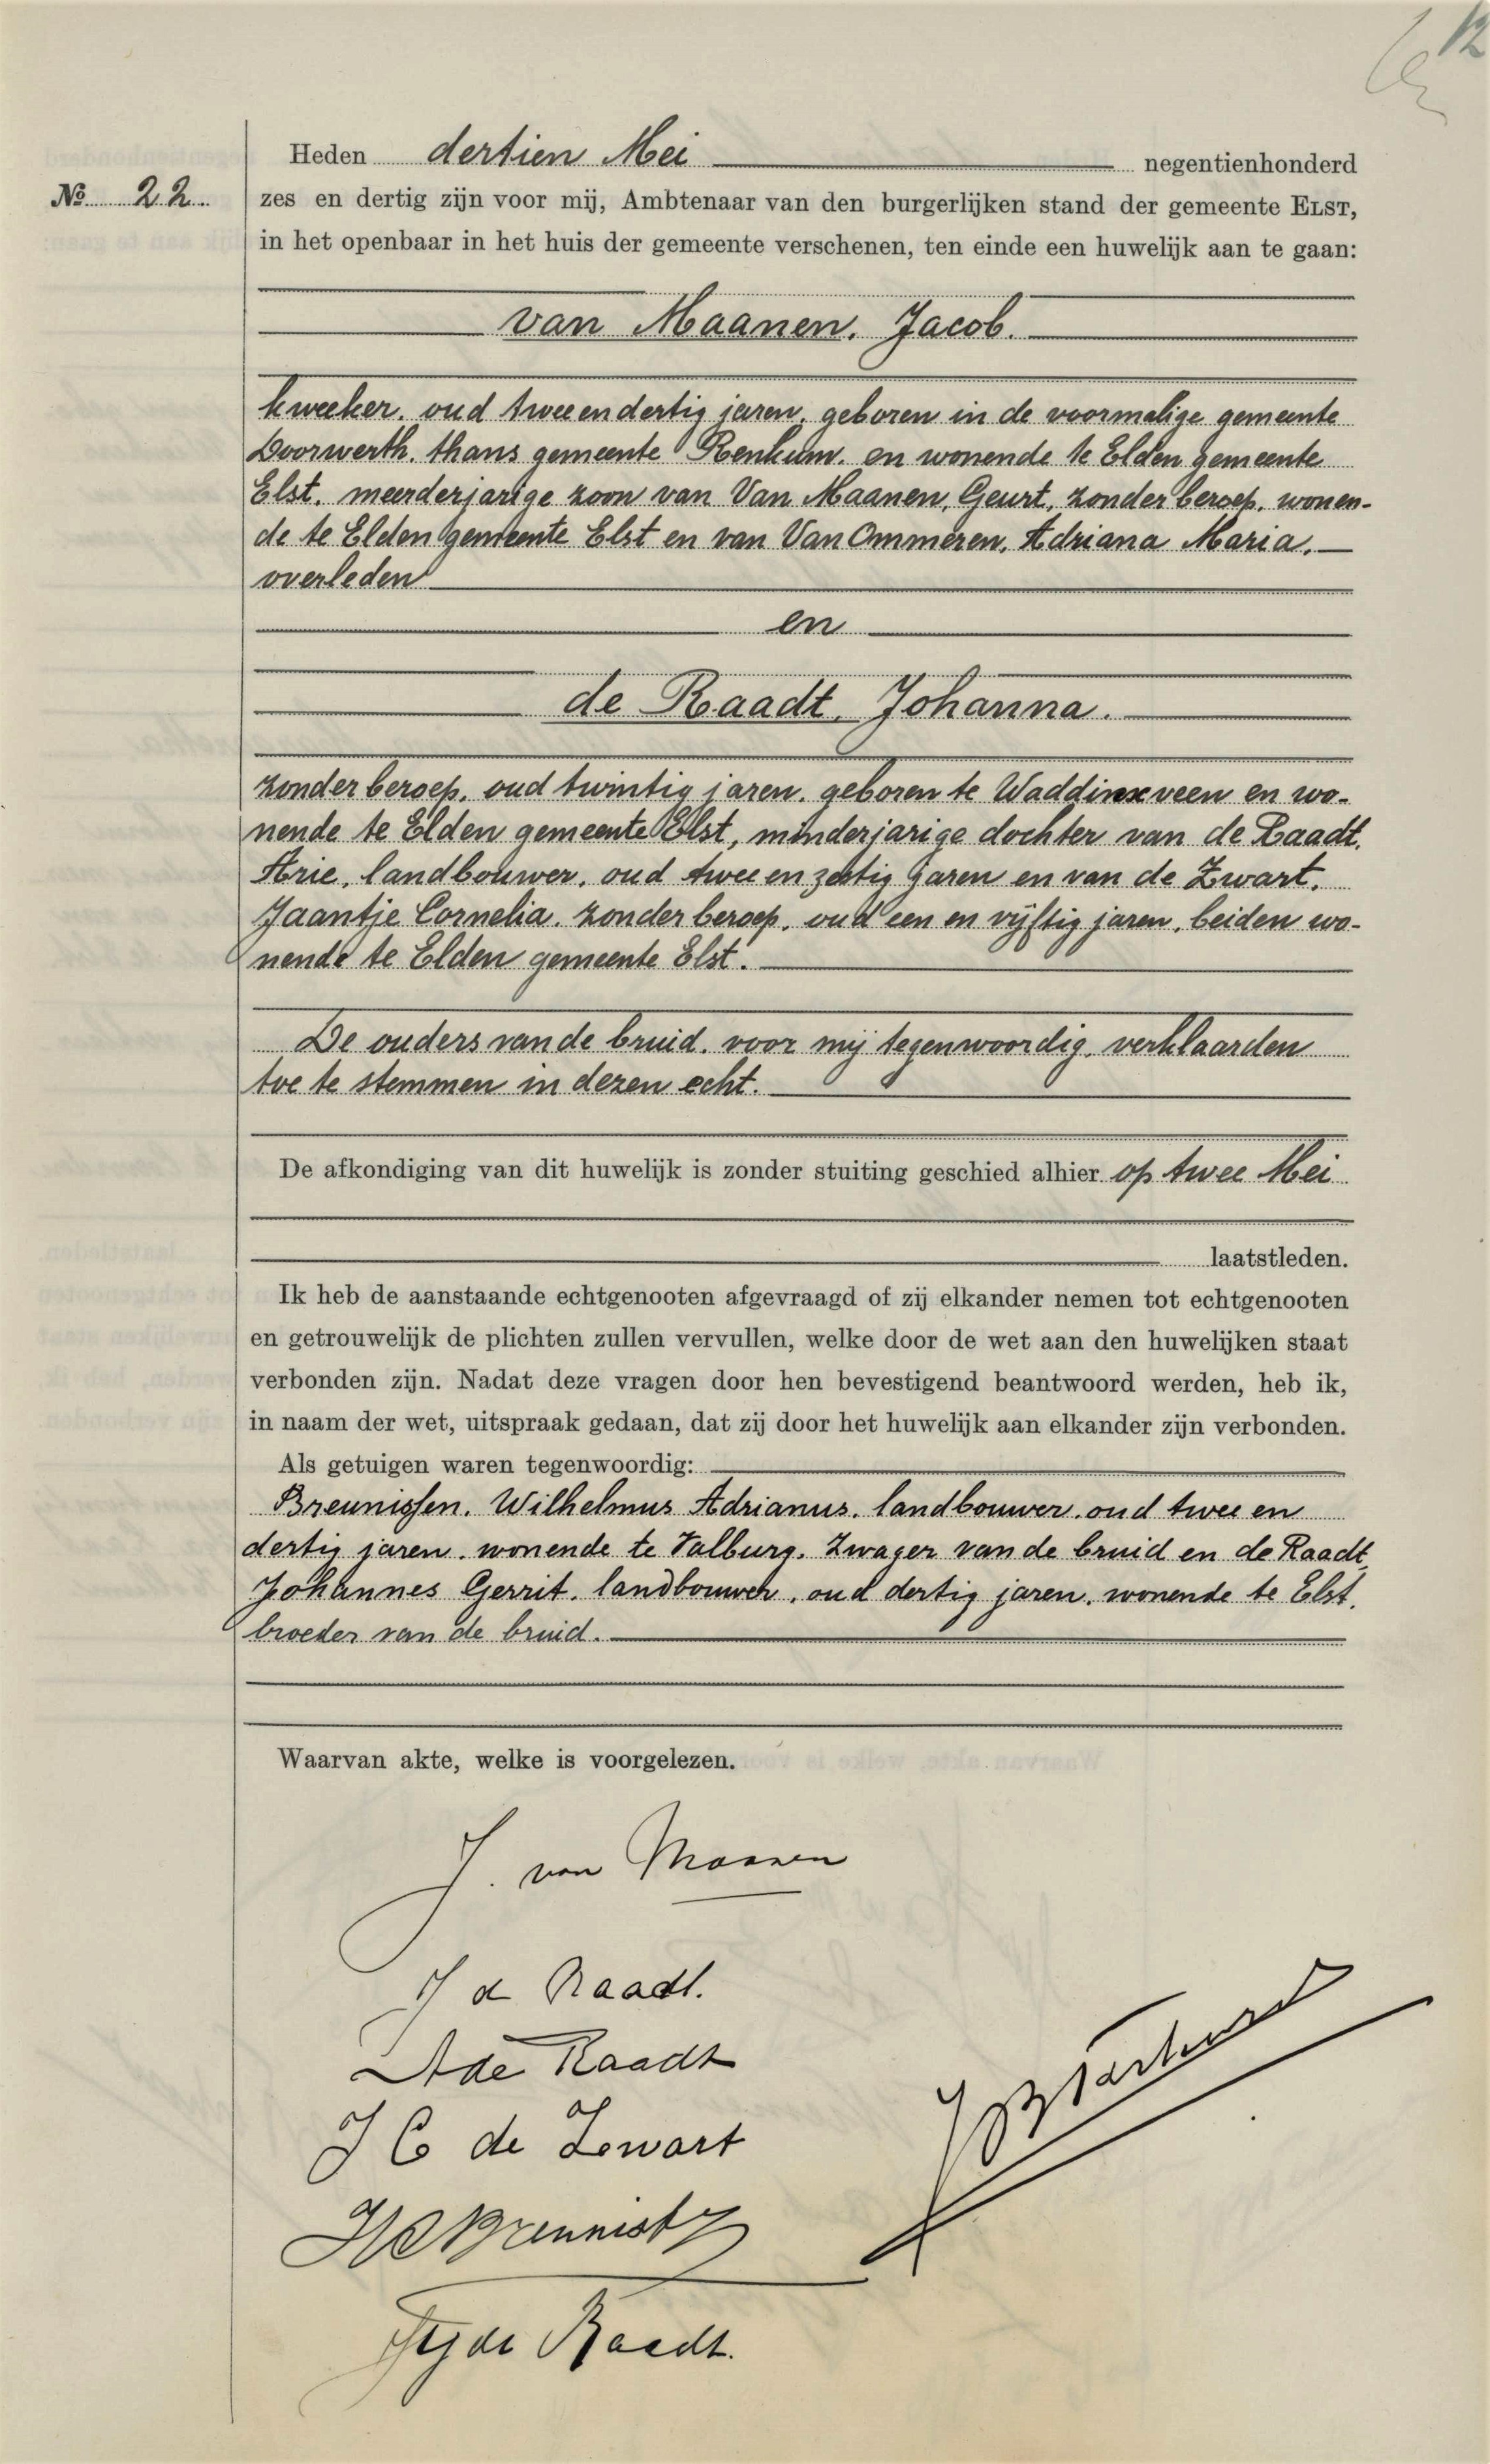 12
Heden dertien Mei negentienhonderd
No 22.
zes en dertig zijn voor mij, Ambtenaar van den burgerlijken stand der gemeente ELST,
in het openbaar in het huis der gemeente verschenen, ten einde een huwelijk aan te gaan:
van Maanen, Jacob.
kweeker, oud twee en dertig jaren, geboren in de voormalige gemeente
Doorwerth, thans gemeente Renkum, en wonende te Elden gemeente
Elst, meerderjarige zoon van Van Maanen, Geurt, zonder beroep, wonen-
de te Elden gemeente Elst en van Van Ommeren, Adriana Maria,
overleden
en
de Raadt, Johanna.
zonder beroep, oud twintig jaren, geboren te Waddinxveen en wo-
nende te Elden gemeente Elst, minderjarige dochter van de Raadt,
Arie, landbouwer, oud twee en zestig jaren en van de Zwart,
Jaantje Cornelia, zonder beroep, oud een en vijftig jaren, beiden wo-
nende te Elden gemeente Elst.
De ouders van de bruid, voor mij tegenwoordig, verklaarden
toe te stemmen in dezen echt.
De afkondiging van dit huwelijk is zonder stuiting geschied alhier op twee Mei
laatstleden.
Ik heb de aanstaande echtgenooten afgevraagd of zij elkander nemen tot echtgenooten
en getrouwelijk de plichten zullen vervullen, welke door de wet aan den huwelijken staat
verbonden zijn. Nadat deze vragen door hen bevestigend beantwoord werden, heb ik,
in naam der wet, uitspraak gedaan, dat zij door het huwelijk aan elkander zijn verbonden.
Als getuigen waren tegenwoordig:
Breunissen, Wilhelmus Adrianus, landbouwer, oud twee en
dertig jaren, wonende te Valburg, zwager van de bruid en de Raadt,
Johannes Gerrit, landbouwer, oud dertig jaren, wonende te Elst,
broeder van de bruid.
Waarvan akte, welke is voorgelezen.
J. van Maanen
J d Raadt.
A de Raadt
J C de Zwart
de Raadt.